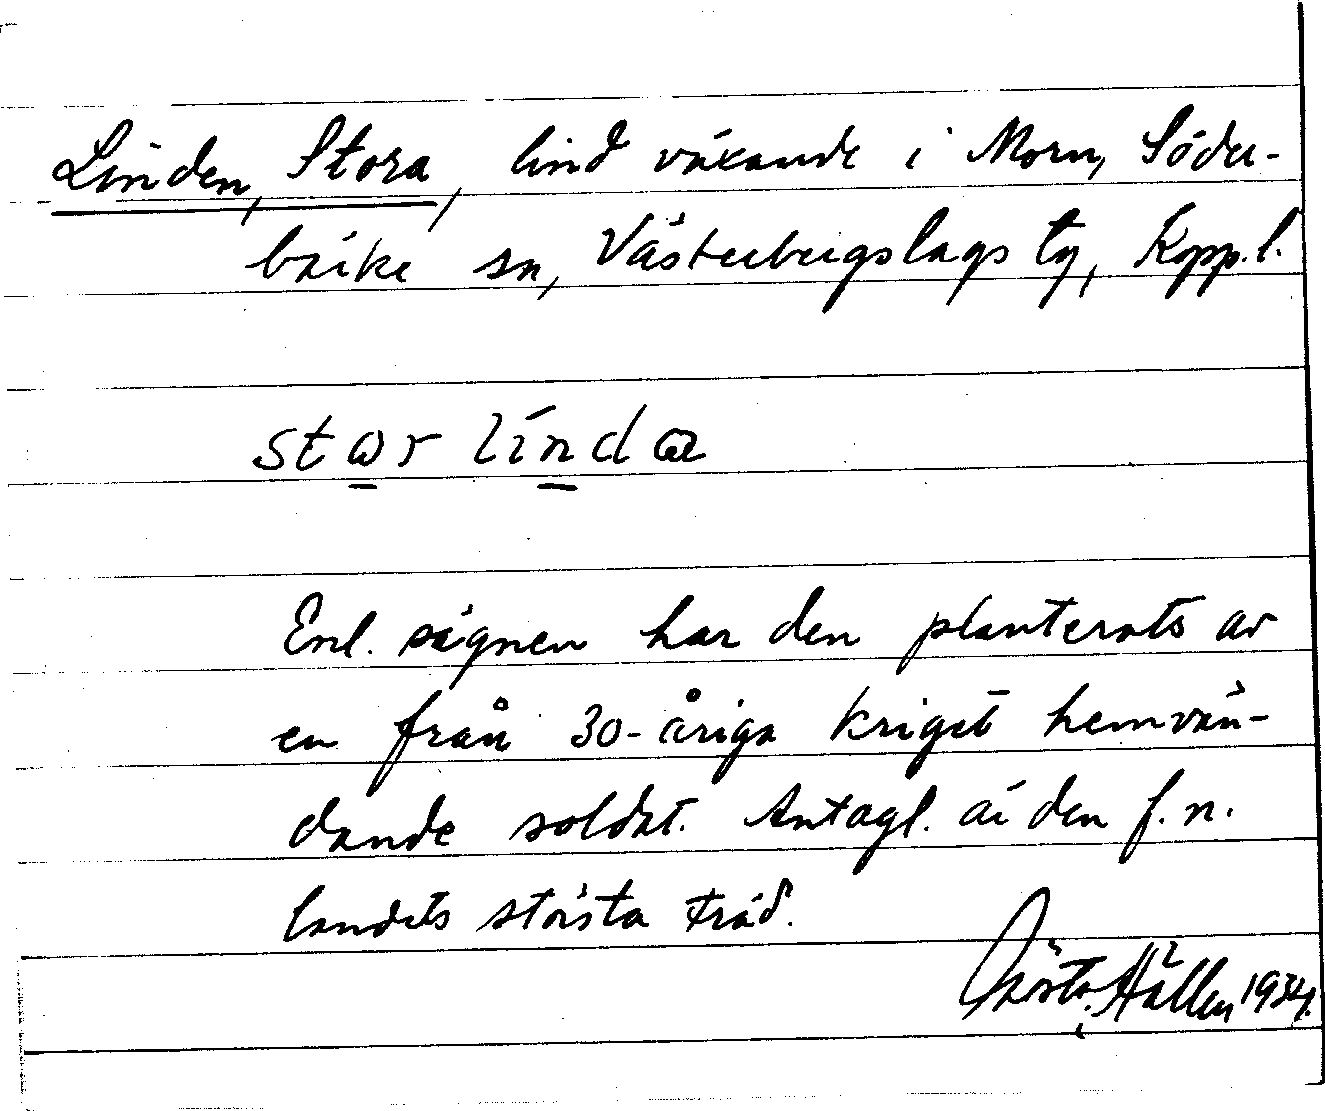 Linden, Stora, lind växande i Morn, Söder-
bärke sn, Västerbergslags tg, Kopp.l.
star línda
Enl. sägnen har den planterats av
en från 30-åriga kriget hemvän-
dande soldat. Antagl. är den f.n.
landets största träd.
Gösta Hällen 1934.